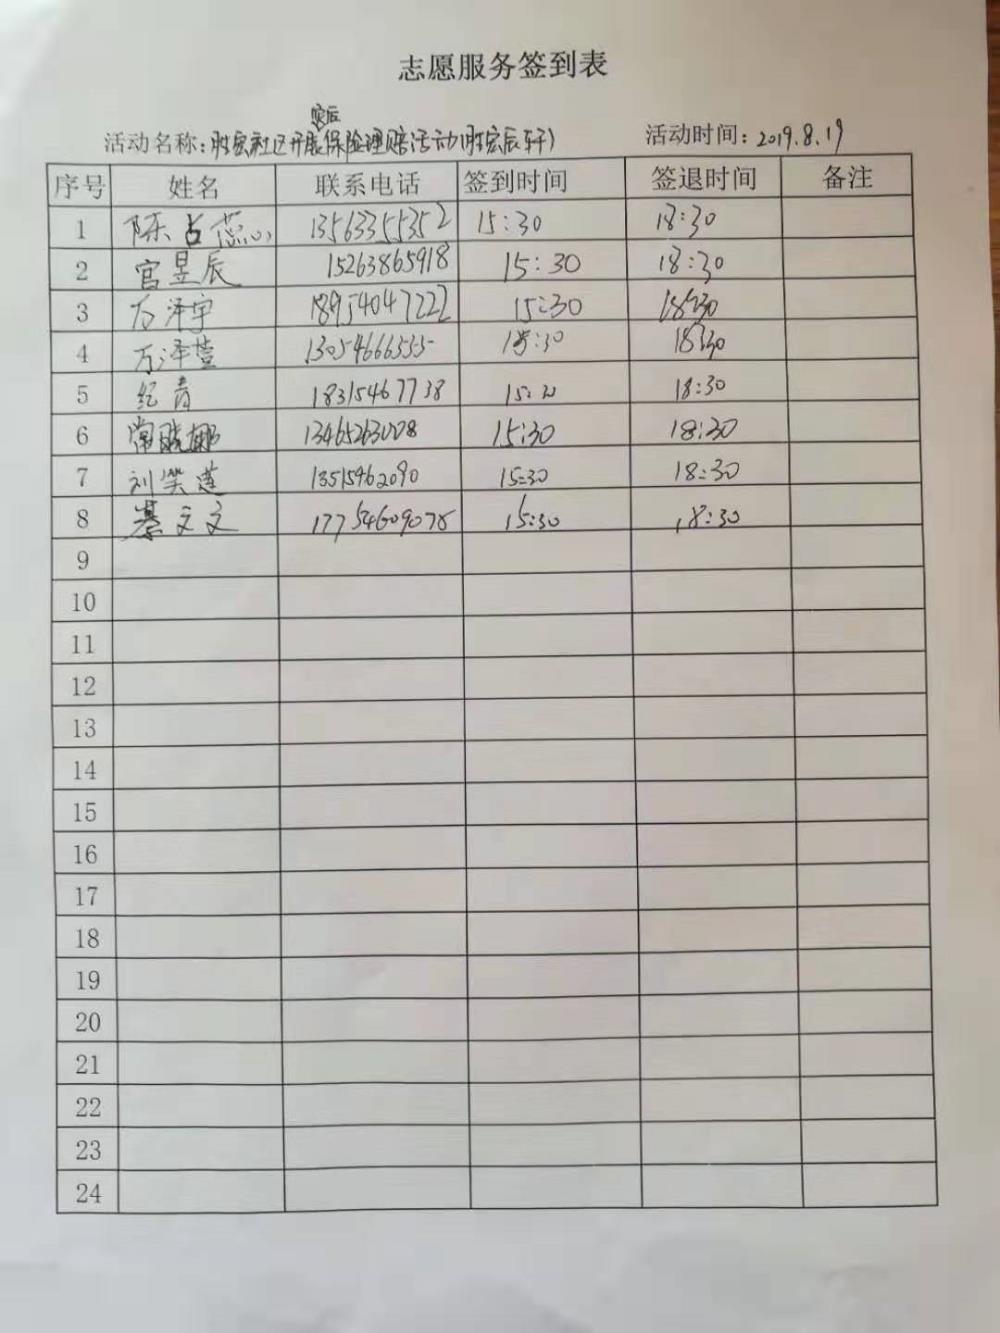 志愿服务签到表
灾后
活动名称：胜宏社区开展保险理赔活动(胜宏辰轩) 活动时间：2019.8.19
序号 姓名 联系电话 签到时间 签退时间 备注
1 陈占蕊 13563355352 15:30 18:30
2 官昱辰 15263865918 15:30 18:30
3 万泽宇 18954047222 15:30 18:30
4 万泽萱 13054666555 15:30 18:30
5 纪青 18315467738 18:30
6 常晓娜 13465263008 15:30 18:30
7 刘笑莲 13515462090 15:30 18:30
8 綦文文 17754609078 15:30 18:30
9
10
11
12
13
14
15
16
17
18
19
20
21
22
23
24